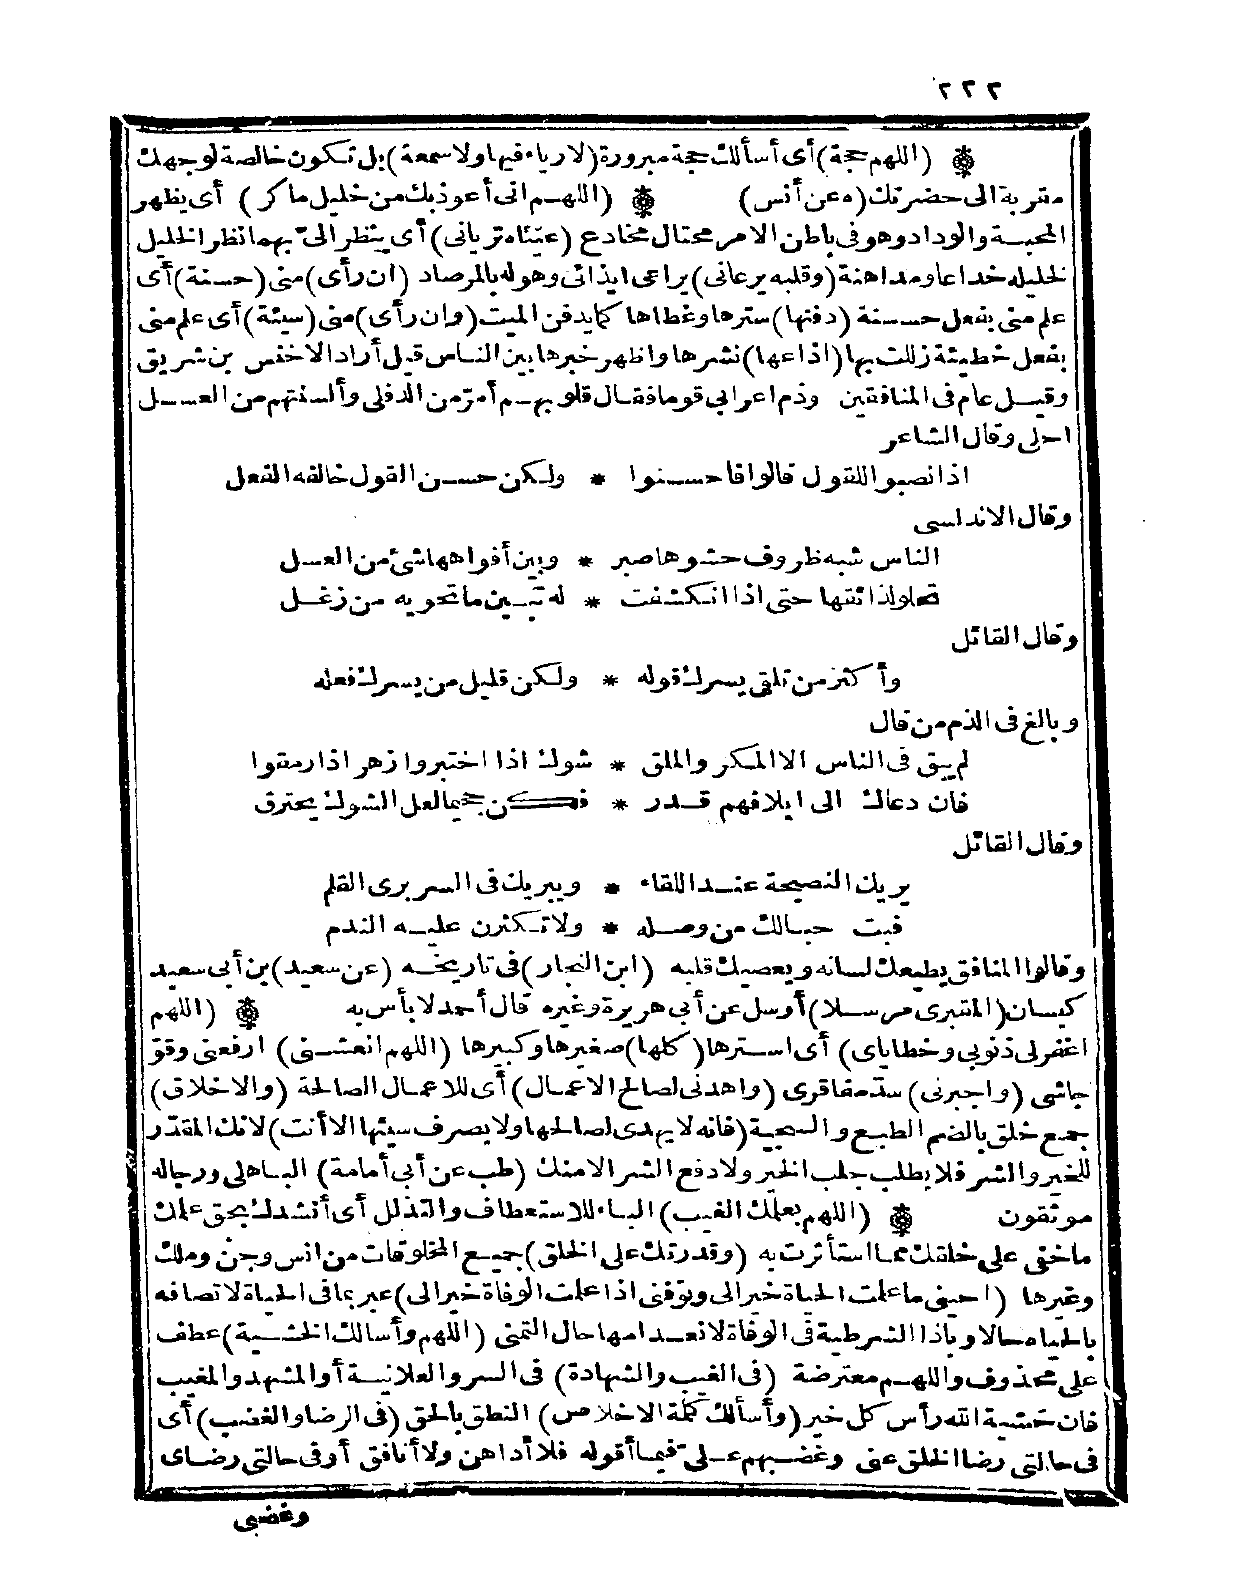 ٢٢٢
(اللهم حجة) أى أسألك حجة مبرورة (لا رياء فيها ولا سمعة) بل تكون خالصة لوجهك
مقربة الى حضرتك (ه عن أنس) (اللهم انى أعوذ بك من خليل ماكر) أى يظهر
المحبة والوداد وهو فى باطن الامر محتال مخادع (عيناه تريانى) أى ينظر الىّ بهما نظر الخليل
لخليله خداعا ومداهنة (وقلبه يرعانى) يراعى ايذائى وهو له بالمرصاد (ان رأى) منى (حسنة) أى
علم منى بفعل حسنة (دفنها) سترها وغطاها كما يدفن الميت (وان رأى) منى (سيئة) أى علم منى
بفعل خطيئة زللت بها (اذاعها) نشرها واظهر خبرها بين الناس قيل أراد الاخنس بن شريق
وقيل عام فى المنافقين وذم اعرابى قوما فقال قلوبهم أمرّ من الدفلى وألسنتهم من العسل
احلى وقال الشاعر
اذا نصبوا للقول قالوا فاحسنوا * ولكن حسن القول خالفه الفعل
وقال الاندلسى
الناس شبه ظروف حشوها صبر * وبين أفواهها شئ من العسل
تحلو لذائقها حتى اذا انكشفت * له تبين ما تحويه من زغل
وقال القائل
وأكثر من تلقى يسرك قوله * ولكن قليل من يسرك فعله
وبالغ فى الذم من قال
لم يبق فى الناس الا المكر والملق * شوك اذا اختبروا زهر اذا رمقوا
فان دعاك الى ايلافهم قدر * فكن جحيما لعل الشوك يحترق
وقال القائل
يريك النصيحة عند اللقاء * ويبريك فى السر برى القلم
فبت حبالك من وصله * ولا تكثرن عليه الندم
وقالوا المنافق يطيعك لسانه ويعصيك قلبه (ابن النجار) فى تاريخه (عن سعيد) بن أبى سعيد
كيسان (المقبرى مرسلا) أرسل عن أبى هريرة وغيره قال أحمد لا بأس به (اللهم
اغفر لى ذنوبى وخطاياى) أى استرها (كلها) صغيرها وكبيرها (اللهم انعشنى) ارفعنى وقو
جاشى (واجبرنى) سد مفاقرى (واهدنى لصالح الاعمال) أى للاعمال الصالحة (والاخلاق)
جمع خلق بالضم الطبع والسجية (فانه لا يهدى لصالحها ولا يصرف سيئها الا أنت) لانك المقدر
للخير والشر فلا يطلب جلب الخير ولا دفع الشر الا منك (طب عن أبى أمامة) الباهلى ورجاله
موثقون (اللهم بعلمك الغيب) الباء للاستعطاف والتذلل أى أنشدك بحق علمك
ما خفى على خلقك مما استأثرت به (وقدرتك على الخلق) جميع المخلوقات من انس وجن وملك
وغيرها (احينى ما علمت الحياة خيرا لى وتوفنى اذا علمت الوفاة خيرا لى) عبر بما فى الحياة لاتصافه
بالحياه حالا وباذا الشرطية فى الوفاة لانعدامها حال التمنى (اللهم وأسألك الخشية) عطف
على محذوف واللهم معترضة (فى الغيب والشهادة) فى السر والعلانية أو المشهد والمغيب
فان خشية الله رأس كل خير (وأسألك كلمة الاخلاص) النطق بالحق (فى الرضا والغضب) أى
فى حالتى رضا الخلق عنى وغضبهم علىّ فيما أقوله فلا أداهن ولا أنافق أو فى حالتى رضاى
وغضبى